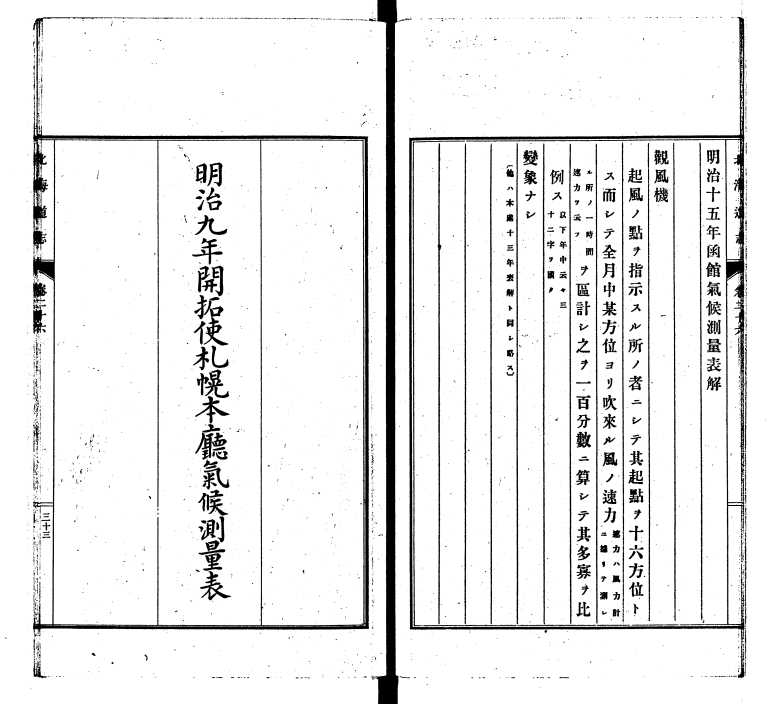 明治十五年函館氣候測量表解
觀風機
起風ノ點ヲ指示スル所ノ者ニシテ其起點ヲ十六方位ト
ス而シテ全月中某方位ヨリ吹來ル風ノ速力速力ハ風力計ニ據リテ測レ
ル所ノ一時間速力ヲ云フヲ區計シ之ヲ一百分數ニ算シテ其多寡ヲ比
例ス以下年中云々三十二字ヲ減ク
變象ナシ
(他ハ本廳十三年表解ト同シ略ス)
北海道志
卷二十六
三十三
明治九年開拓使札幌本廳氣候測量表